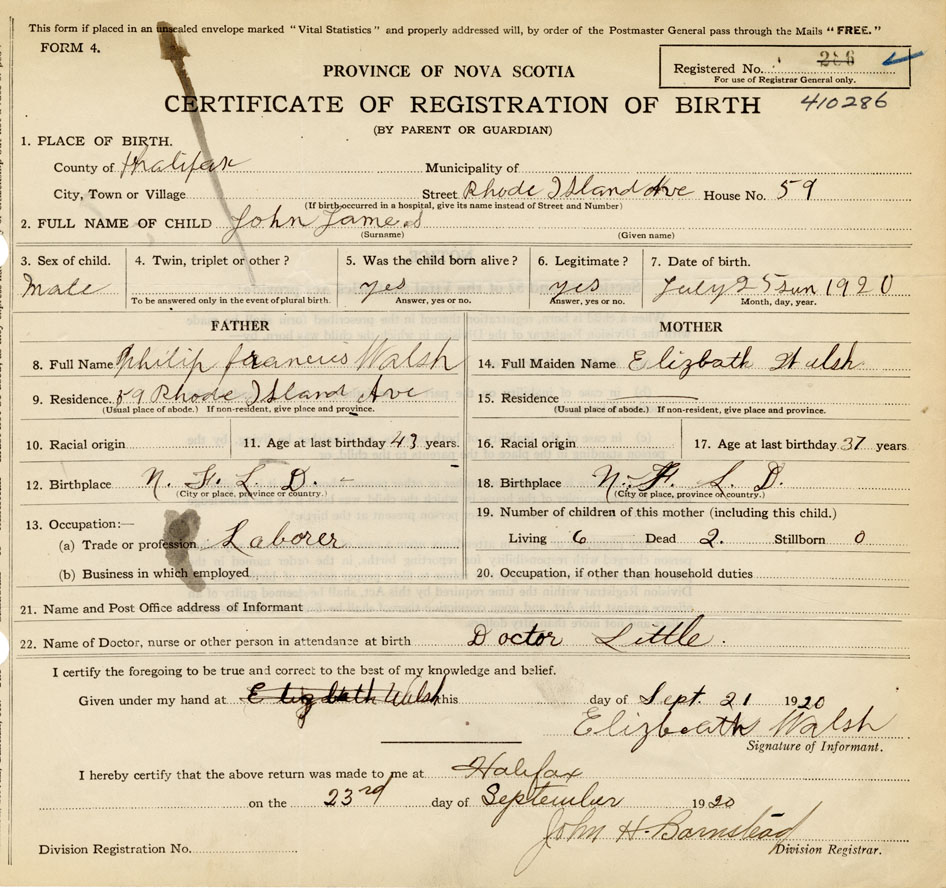 This form if placed in an unsealed envelope marked "Vital Statistics" and properly addressed will, by order of the Postmaster General pass through the Mails "FREE."
FORM 4.
Registered No. 286
For use of Registrar General only.
PROVINCE OF NOVA SCOTIA
CERTIFICATE OF REGISTRATION OF BIRTH 410286
(BY PARENT OR GUARDIAN)
1. PLACE OF BIRTH.
County of Halifax Municipality of
City, Town or Village Street Rhode Island Ave House No. 59
(If birth occurred in a hospital, give its name instead of Street and Number)
2. FULL NAME OF CHILD John James
(Surname) (Given name)
3. Sex of child. 4. Twin, triplet or other? 5. Was the child born alive? 6. Legitimate? 7. Date of birth.
Male yes yes July 25 Sun 1920
To be answered only in the event of plural birth. Answer, yes or no. Answer, yes or no. Month, day, year.
FATHER MOTHER
8. Full Name Philip francus Walsh 14. Full Maiden Name Elizbath Walsh
9. Residence. 59 Rhode Island Ave 15. Residence
(Usual place of abode.) If non-resident, give place and province. (Usual place of abode.) If non-resident, give place and province.
10. Racial origin 11. Age at last birthday 43 years. 16. Racial origin 17. Age at last birthday 37 years
12. Birthplace N. F. L. D. - 18. Birthplace N. F. L. D.
(City or place, province or country.) (City or place, province or country.)
13. Occupation:— 19. Number of children of this mother (including this child.)
(a) Trade or profession Laborer Living 6 Dead 2. Stillborn 0
(b) Business in which employed 20. Occupation, if other than household duties
21. Name and Post Office address of Informant
22. Name of Doctor, nurse or other person in attendance at birth Doctor Little.
I certify the foregoing to be true and correct to the best of my knowledge and belief.
Given under my hand at Elizbath Walsh this day of Sept. 21 1920
Elizbeath Walsh
Signature of Informant.
I hereby certify that the above return was made to me at Halifax
on the 23rd day of September 1920
John H. Barnstead
Division Registration No. Division Registrar.